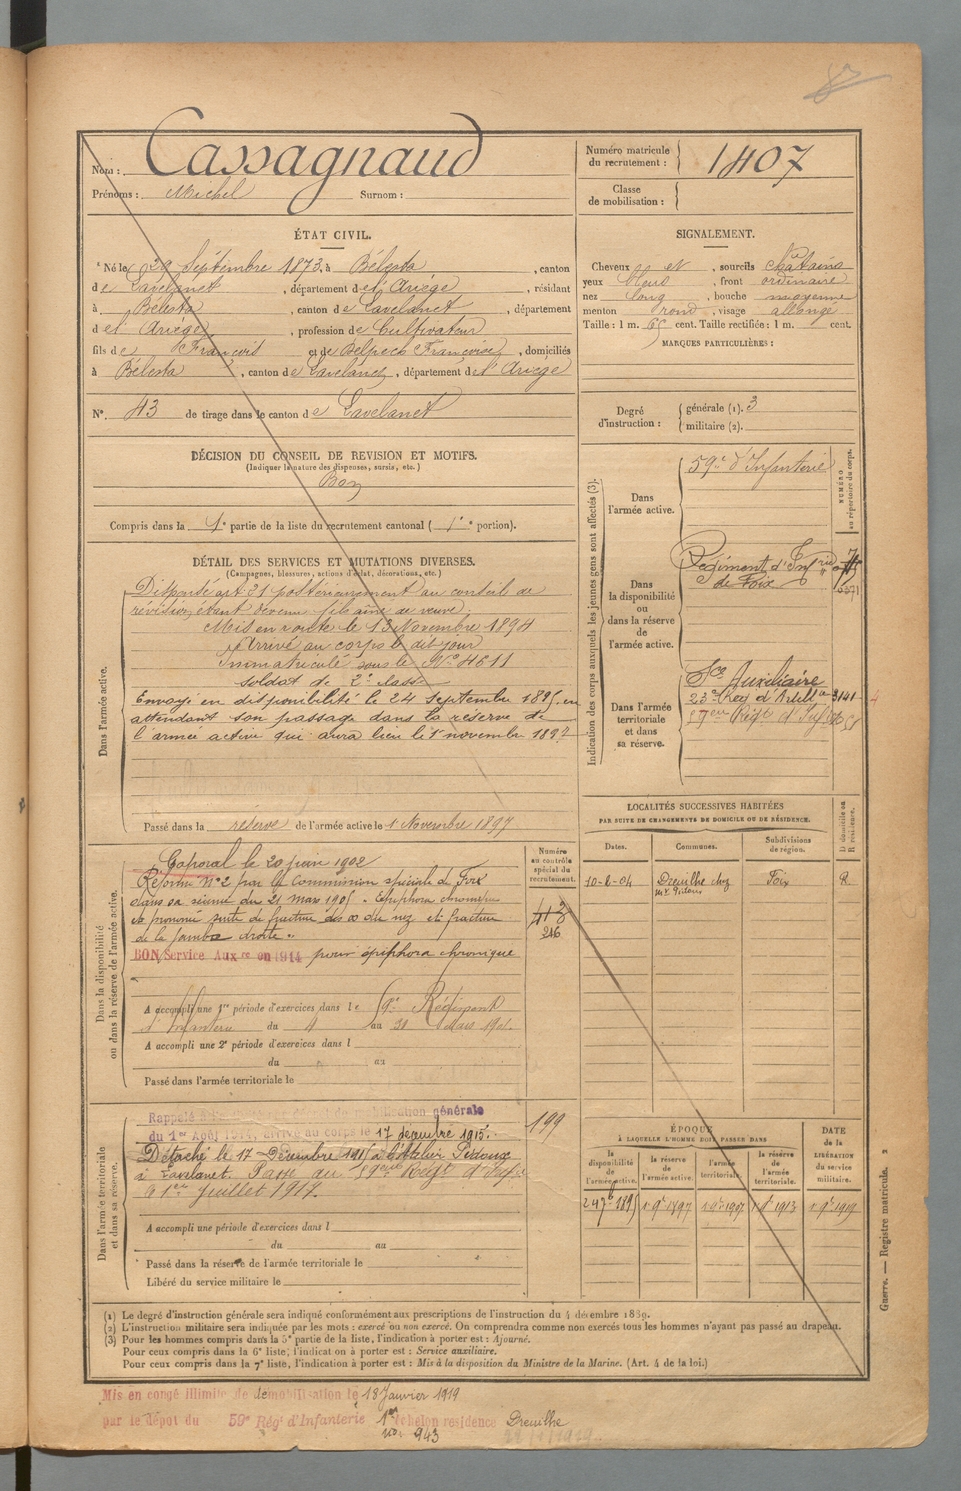 Nom : Cassagnaud
Prénoms : Michel Surnom :
Numéro matricule du recrutement : 1407
Classe de mobilisation :
ÉTAT CIVIL.
Né le 29 Septembre 1873 à Bélesta, canton
de Lavelanet, département de l'Ariège, résidant
à Bélesta, canton de Lavelanet, département
de l'Ariège, profession de Cultivateur
fils de François et de Françoise, domiciliés
à Bélesta, canton de Lavelanet, département de l'Ariège
N° 43 de tirage dans le canton de Lavelanet
SIGNALEMENT.
Cheveux et, sourcils châtains
yeux bleus, front ordinaire
nez long, bouche moyenne
menton rond, visage allongé
Taille : 1 m. 65 cent. Taille rectifiée : 1 m. cent.
MARQUES PARTICULIÈRES :
Degré d'instruction : générale (1). 3
militaire (2).
DÉCISION DU CONSEIL DE REVISION ET MOTIFS.
(Indiquer la nature des dispenses, sursis, etc.)
Bon
Compris dans la 1e partie de la liste du recrutement cantonal (1e portion).
DÉTAIL DES SERVICES ET MUTATIONS DIVERSES.
(Campagnes, blessures, actions d'éclat, décorations, etc.)
Dans l'armée active.
Dispensé art 21 postérieurement au conseil de
révision, étant devenu fils aîné de veuve.
Mis en route le 13 Novembre 1894
Arrivé au corps le dit jour
Immatriculé sous le N° 4611
soldat de 2e classe
Envoyé en disponibilité le 24 Septembre 1895, en
attendant son passage dans la réserve de
l'armée active qui aura lieu le 1 novembre 1897
Passé dans la réserve de l'armée active le 1 Novembre 1897
Indication des corps auxquels les jeunes gens sont affectés (3).
NUMÉRO au répertoire du corps.
Dans l'armée active.
59e d'Infanterie
Dans la disponibilité ou dans la réserve de l'armée active.
Régiment d'Infrie
de Foix
Dans l'armée territoriale et dans sa réserve.
Sce Auxiliaire
23e Reg d'Artillie 3141
59eme Regt d'Inf
LOCALITÉS SUCCESSIVES HABITÉES
PAR SUITE DE CHANGEMENTS DE DOMICILE OU DE RÉSIDENCE.
Dates. Communes. Subdivisions de région. D domicile ou R résidence.
Dreuilhe chez Foix R.
Dans la disponibilité ou dans la réserve de l'armée active.
Numéro au contrôle spécial du recrutement.
Caporal le 20 1902
Réformé N°2 par la Commission spéciale de Foix
dans sa séance du 21 mars 1905. Epiphora chronique
prononcé suite de fracture des os du nez et fracture
de la jambe droite.
216
BON Service Auxre en 1914 pour épiphora chronique
A accompli une 1re période d'exercices dans le 59e Régiment
d'Infanterie du 4 au 31 Mars 1901.
A accompli une 2e période d'exercices dans l
du au
Passé dans l'armée territoriale le
Dans l'armée territoriale et dans sa réserve.
Rappelé mobilisation générale
du 1er Août 1914, arrivé au corps le 17 decembre 1915.
199
Détaché le 17 Décembre 1915 à l'Atelier
à Lavelanet. Passé au 59eme Regt d'Infie
le 1er Juillet 1917.
A accompli une période d'exercices dans l
du au
Passé dans la réserve de l'armée territoriale le
Libéré du service militaire le
ÉPOQUE
À LAQUELLE L'HOMME DOIT PASSER DANS
DATE de la LIBÉRATION du service militaire.
la disponibilité de l'armée active. la réserve de l'armée active. l'armée territoriale. la réserve de l'armée territoriale.
24 7bre 1895 1 9bre 1897 1 9bre 1907 1913 1 9bre 1919
(1) Le degré d'instruction générale sera indiqué conformément aux prescriptions de l'instruction du 4 décembre 1889.
(2) L'instruction militaire sera indiquée par les mots : exercé ou non exercé. On comprendra comme non exercés tous les hommes n'ayant pas passé au drapeau.
(3) Pour les hommes compris dans la 5e partie de la liste, l'indication à porter est : Ajourné.
Pour ceux compris dans la 6e liste, l'indication à porter est : Service auxiliaire.
Pour ceux compris dans la 7e liste, l'indication à porter est : Mis à la disposition du Ministre de la Marine. (Art. 4 de la loi.)
Guerre. — Registre matricule. 2
Mis en congé illimité de démobilisation le 18 Janvier 1919
par le dépôt du 59e Régt d'Infanterie 1er échelon résidence Dreuilhe
no 943